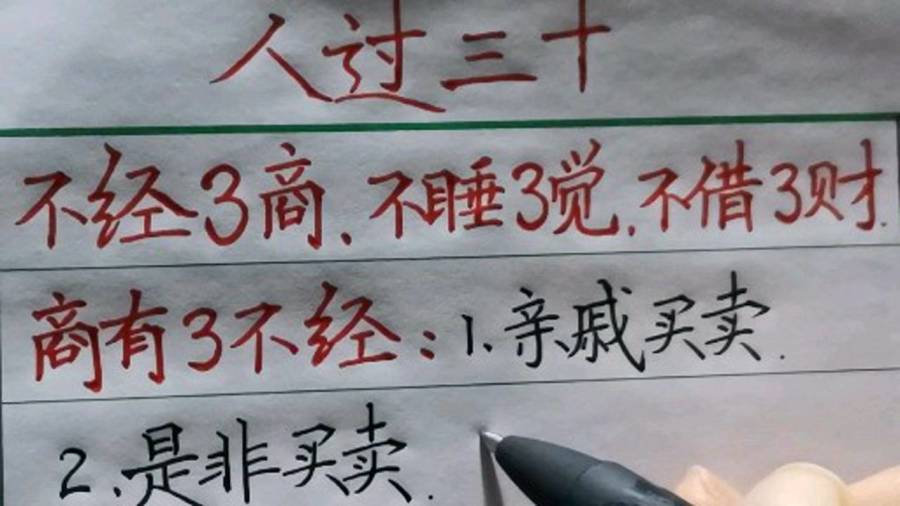 人过三十
不经3商.不睡3觉.不借3财.
商有3不经:1.亲戚买卖.
2.是非买卖.